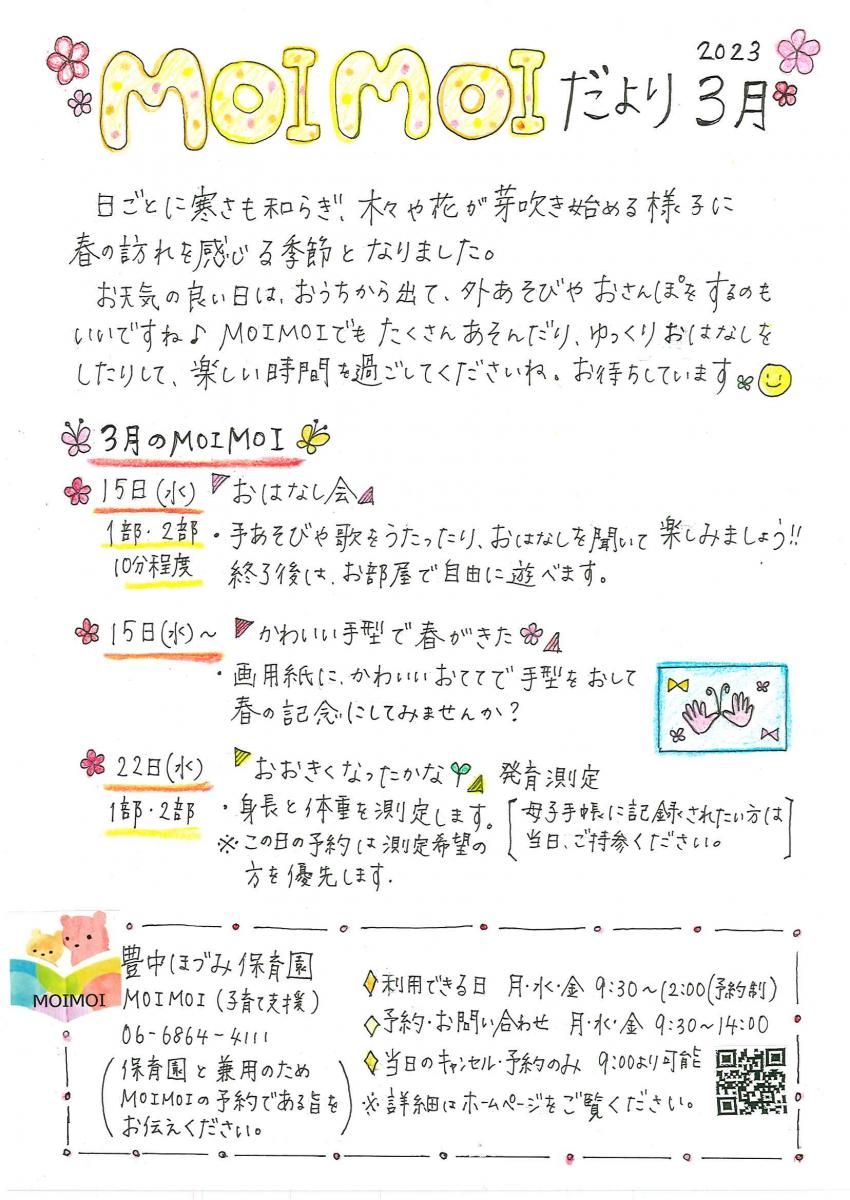 MOIMOIだより 2023 3月
日ごとに寒さも和らぎ、木々や花が芽吹き始める様子に
春の訪れを感じる季節となりました。
お天気の良い日は、おうちから出て、外あそびやおさんぽをするのも
いいですね♪ MOIMOIでもたくさんあそんだり、ゆっくりおはなしを
したりして、楽しい時間を過ごしてくださいね。お待ちしています
3月のMOIMOI
15日(水) おはなし会
1部・2部 ・手あそびや歌をうたったり、おはなしを聞いて楽しみましょう!!
10分程度 終了後は、お部屋で自由に遊べます。
15日(水)~ かわいい手型で春がきた
・画用紙に、かわいいおててで手型をおして
春の記念にしてみませんか?
22日(水) おおきくなったかな 発育測定
1部・2部 ・身長と体重を測定します。
※この日の予約は測定希望の
方を優先します.
[母子手帳に記録されたい方は
当日、ご持参ください。]
MOIMOI
豊中ほづみ保育園
MOIMOI(子育て支援)
06-6864-4111
(保育園と兼用のため
MOIMOIの予約である旨を
お伝えください。)
利用できる日 月・水・金 9:30~12:00(予約制)
予約・お問い合わせ 月・水・金 9:30~14:00
当日のキャンセル・予約のみ 9:00より可能
※詳細はホームページをご覧ください。